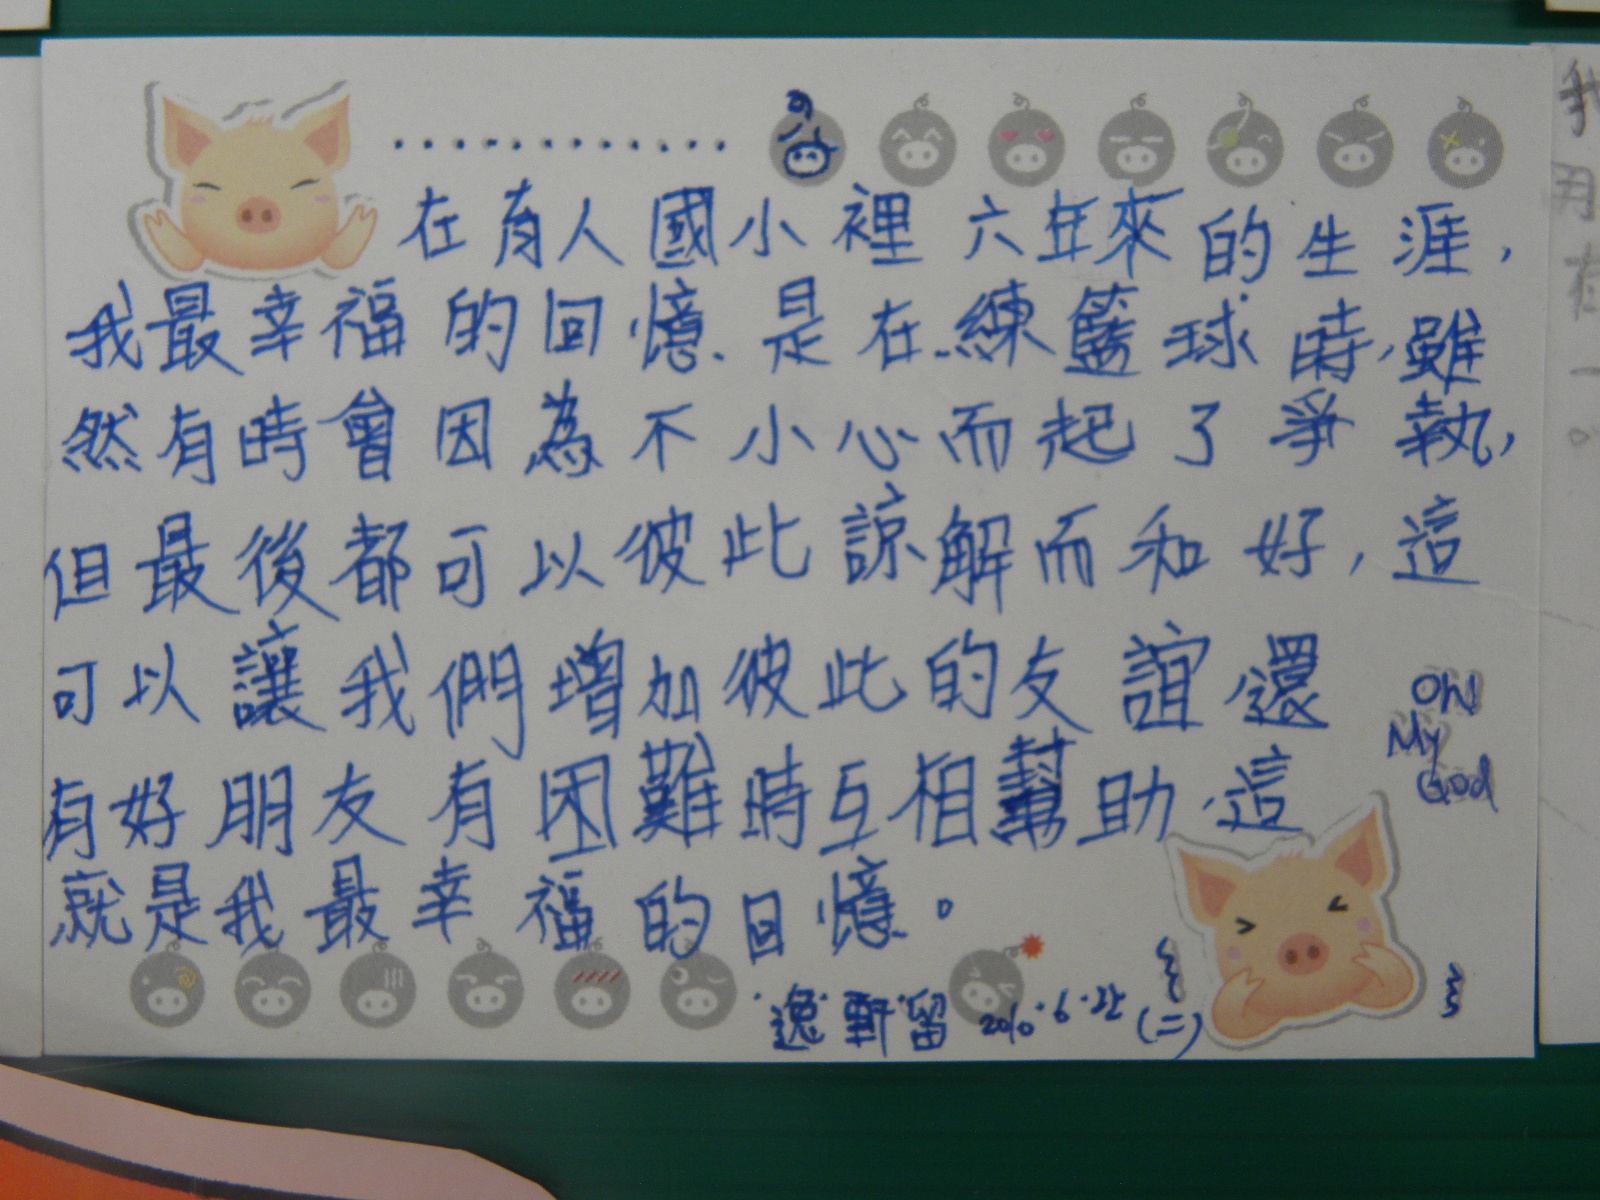 在育人國小裡六年來的生涯,
我最幸福的回憶是在練籃球時,雖
然有時會因為不小心而起了爭執,
但最後都可以彼此諒解而和好,這
可以讓我們增加彼此的友誼還
有好朋友有困難時互相幫助,這
就是我最幸福的回憶。
Oh!
My
God
逸軒留 2010.6.22 (二)
我
一